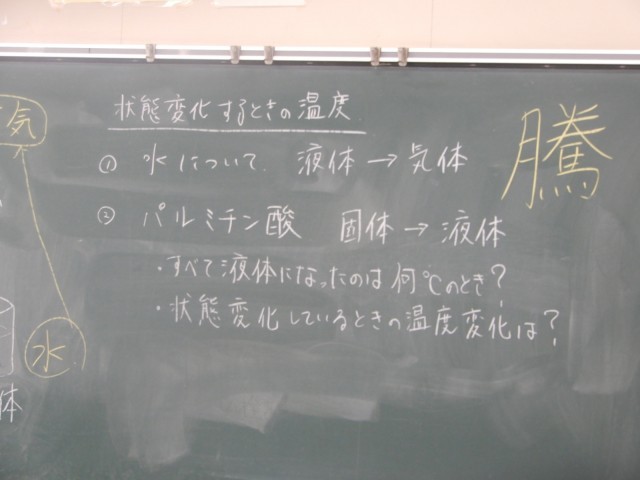 状態変化するときの温度
① 水について 液体→気体
② パルミチン酸 固体→液体
・すべて液体になったのは何℃のとき?
・状態変化しているときの温度変化は?
騰
気
水
体